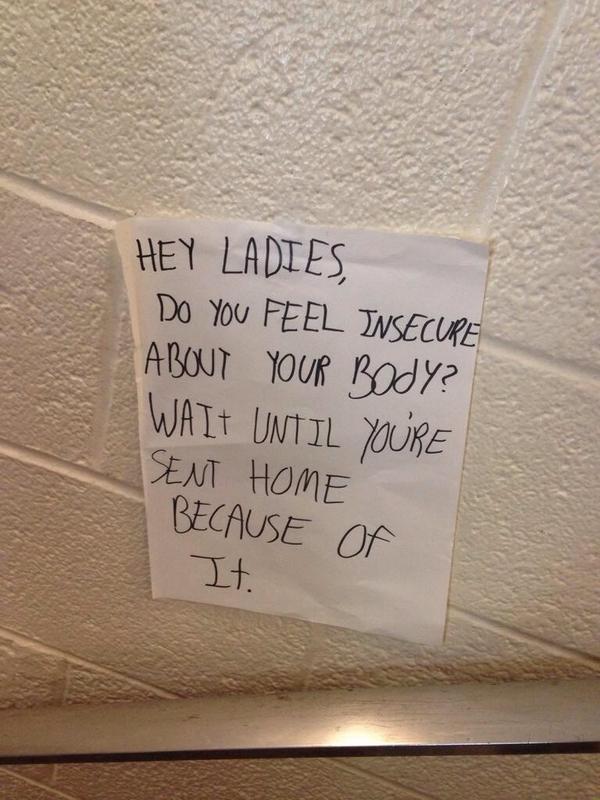 HEY LADIES,
DO YOU FEEL INSECURE
ABOUT YOUR BODY?
WAIT UNTIL YOU'RE
SENT HOME
BECAUSE OF
It.